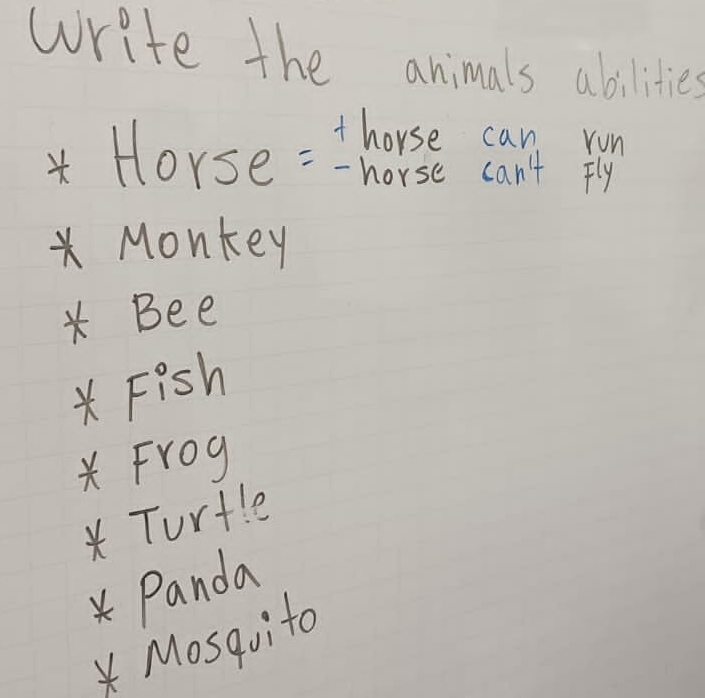 Write the animals abilities
* Horse = + horse can run
- horse can't Fly
* Monkey
* Bee
* Fish
* Frog
* Turtle
* Panda
* Mosquito